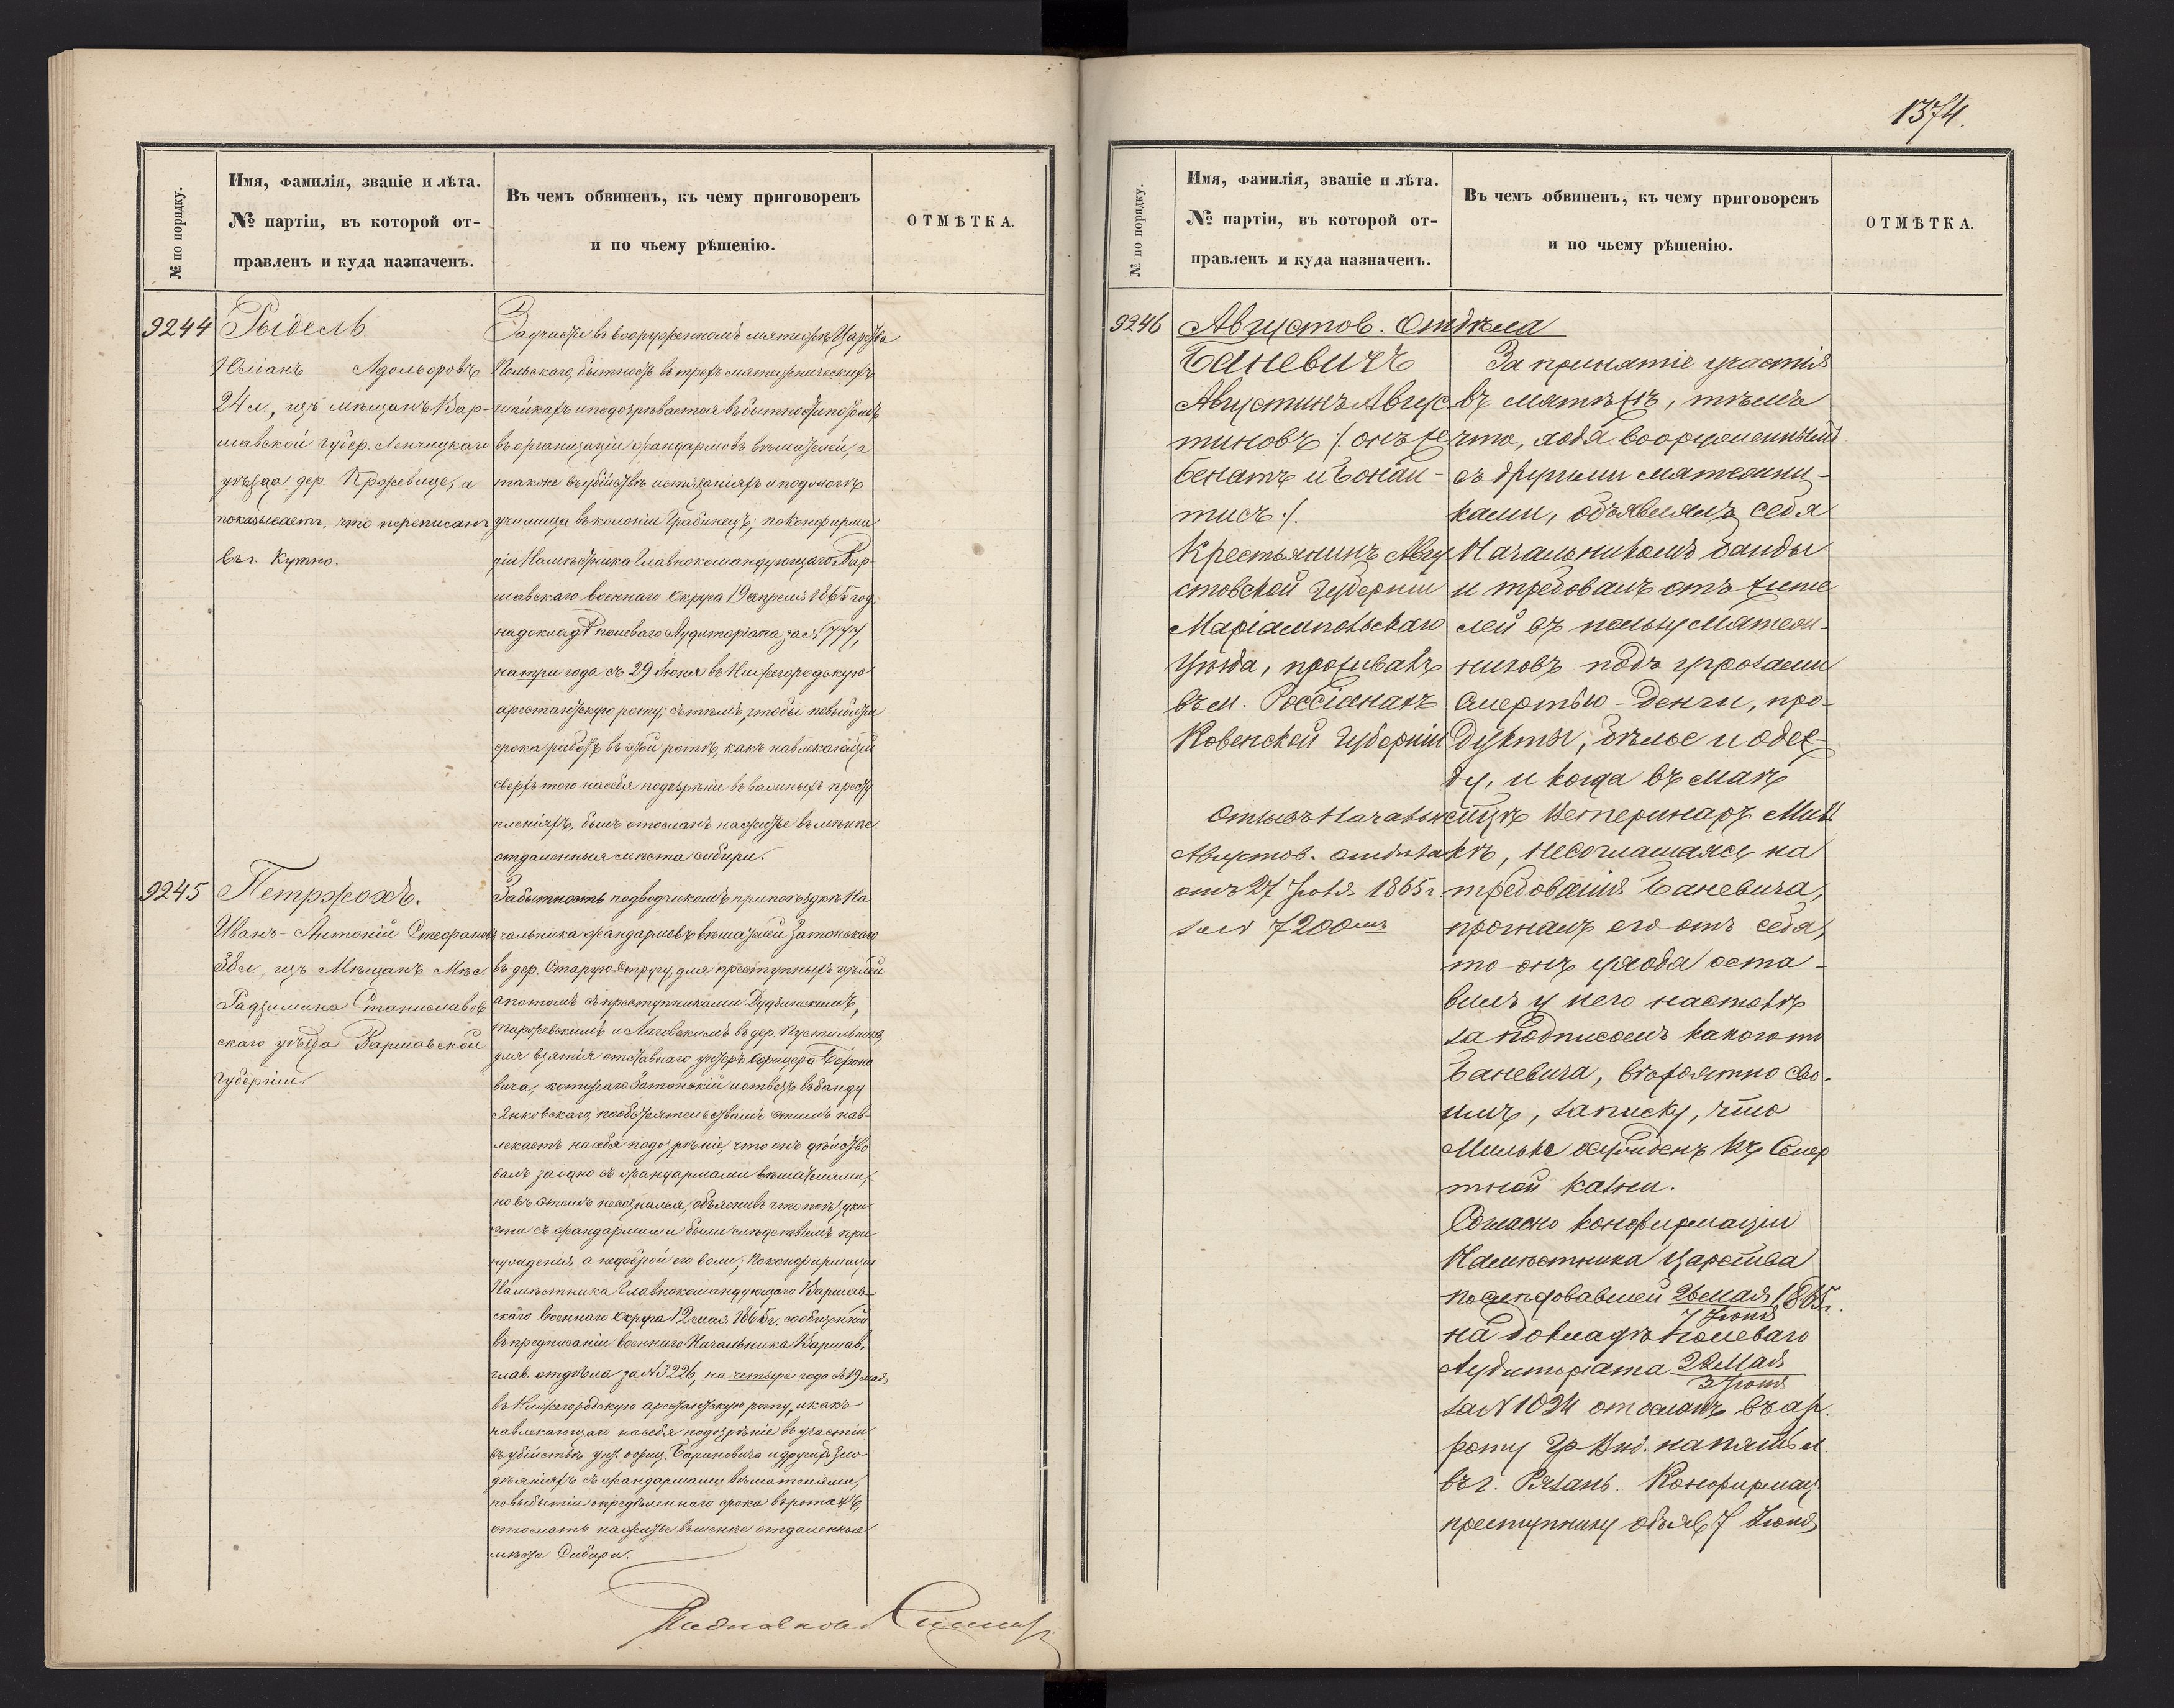 № по порядку.
Имя, фамилія, званіе и лѣта.
№ партіи, въ которой от-
правленъ и куда назначенъ.
Въ чемъ обвиненъ, къ чему приговоренъ
и по чьему рѣшенію.
ОТМѢТКА.
9244
Рыдель
Юліанъ Адольфовъ
24 л., изъ мѣщанъ Вар-
шавской губер. Ленчицкаго
уѣзда дер.
показываетъ, что переписанъ
въ г. Кутно.
За участіе въ вооруженномъ мятежѣ Царства
Польскаго, бытность въ трехъ мятежническихъ
шайкахъ и подозрѣвается въ бытности потомъ
въ организаціи жандармовъ вѣшателей, а
также въ убійствѣ истязаніяхъ и поджогѣ
училища въ колоніи Грабинецъ; по конфирма
ціи Намѣстника Главнокомандующаго Вар-
шавскаго военнаго округа 19 апреля 1865 год.
на докладѣ полеваго Аудиторіата за № 777,
на три года съ 29 Іюня въ Нижегородскую
арестантскую роту; съ тѣмъ, чтобы по выбытіи
срока работъ въ этой ротѣ, какъ навлекающій
сверхъ того на себя подозрѣніе въ важныхъ престу
пленіяхъ, былъ отосланъ на житье въ менѣе
отдаленныя мѣста Сибири.
9245
Петржохъ.
Иванъ-Антоній Стефановъ
38 л., изъ Мѣщанъ Мѣс.
Радзимина Станиславов
скаго уѣзда Варшавской
губерніи.
За бытность подводчикомъ при поѣздкѣ На
чальника жандармовъ вѣшателей Затонскаго
въ дер. Старую Стругу, для преступныхъ цѣлей
а потомъ съ преступниками Дудзинскимъ,
и Лаговскимъ въ дер.
для взятія отставнаго унтеръ офицера Барано
вича, котораго Затонскій и отвезъ въ банду
Янковскаго, по обстоятельствамъ этимъ нав-
лекаетъ на себя подозрѣніе, что онъ дѣйство
валъ заодно съ жандармами вѣшателями,
но въ этомъ несознался, объяснивъ что поѣздки
эти съ жандармами были слѣдствіемъ при
нужденія, а недоброй его воли; по конфирмаціи
Намѣстника Главнокомандующаго Варшав
скаго военнаго округа 12 мая 1865 г. сообщенной
въ предписаніи военнаго Начальника Варшав.
глав. отдѣла за № 3226, на четыре года съ 19 мая,
въ Нижегородскую арестантскую роту, и какъ
навлекающаго на себя подозрѣніе въ участіи
въ убійствѣ унт. офиц. Барановича и другихъ зло-
дѣяніяхъ съ жандармами вѣшателями,
по выбытіи опредѣленнаго срока въ ротахъ,
отослать на житье въ менѣе отдаленные
мѣста Сибири.
1374.
№ по порядку.
Имя, фамилія, званіе и лѣта.
№ партіи, въ которой от-
правленъ и куда назначенъ.
Въ чемъ обвиненъ, къ чему приговоренъ
и по чьему рѣшенію.
ОТМѢТКА.
9246
Августов. Отдѣла
Баневичъ
Августинъ Авгус
тиновъ /. онъ же
Бенатъ и Бонай-
тисъ ./.
Крестьянинъ Авгу
стовской Губерніи
Маріампольскаго
Уѣзда, проживалъ
въ м. Россіанахъ
Ковенской Губерніи
Отзывъ Начальн
Августов. отдѣла
отъ 27 Іюля 1865 г.
за № 7200мъ
За принятіе участія
въ мятежѣ, тѣмъ
что, ходя вооруженнымъ
съ другими мятежни-
ками, объявлялъ себя
Начальникомъ банды
и требовалъ отъ жите
лей въ пользу мятеж-
никовъ подъ угрозами
смертью - Денги, про-
дукты, бѣлье и одеж-
ду, и когда въ маѣ
мцѣ Ветеринаръ Мил
ке, несоглашаясь на
требованія Баневича,
прогналъ его отъ себя,
то онъ уходя оста-
вилъ у него на столѣ
за подписомъ какого то
Баневича, вѣроятно сво-
имъ, записку, что
Мильке осужденъ къ Смер
тной казни.
Согласно конфирмаціи
Намѣстника Царства
послѣдовавшей 26 мая / 7 Іюня 1865 г.
на докладѣ полеваго
Аудиторіата 22 Мая / 3 Іюня
за № 1024 отосланъ въ ар.
роту Гр Вѣд. на пять л.
въ г. Рязань. Конфирмац.
преступнику объяв. 7 Іюня